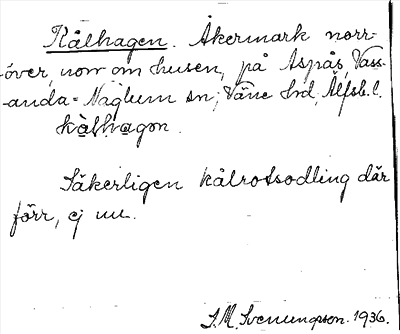 Kålhagen. Åkermark norr-
över, norr om husen, på Aspås, Vass-
anda-Naglum sn; Väne hd, Älfsb. l.
kålhagɷn.
Säkerligen kålrotsodling där
förr, ej nu.
S.M. Svenungsson. 1936.